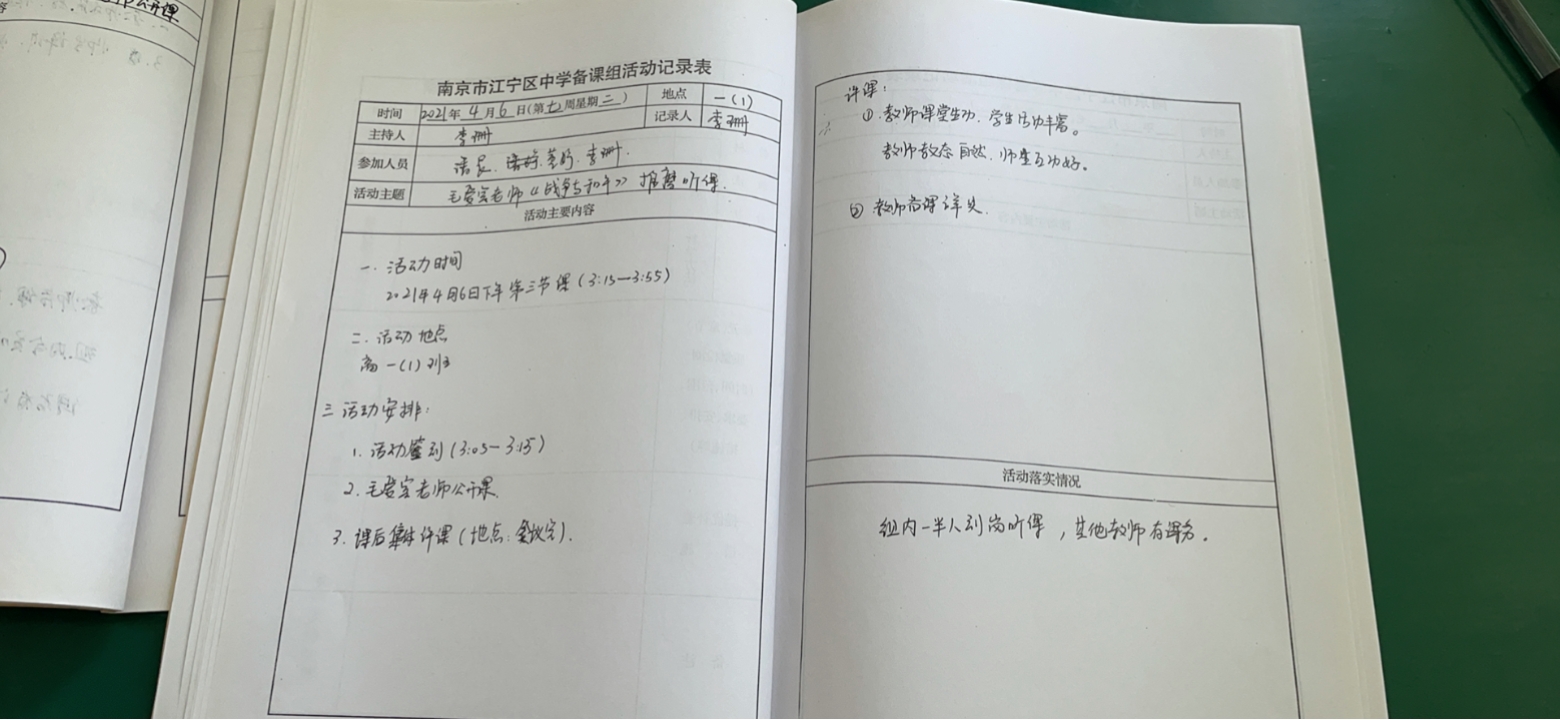 公开课
南京市江宁区中学备课组活动记录表
时间 2021年4月6日(第七周星期二) 地点 一(1)
主持人 李珊 记录人 李珊
参加人员 李珊.
活动主题 老师《战争与和平》推磨听课.
活动主要内容
一. 活动时间
2021年4月6日下午第三节课(3:15—3:55)
二. 活动地点
高一(1)班
三 活动安排:
1. 活动签到(3:05—3:15)
2. 老师公开课.
3. 课后集体评课(地点:会议室).
评课:
①.教师课堂生动.学生活动丰富。
教师教态自然.师生互动好。
② 教师备课详实.
活动落实情况
组内一半人到岗听课,其他教师有课务。